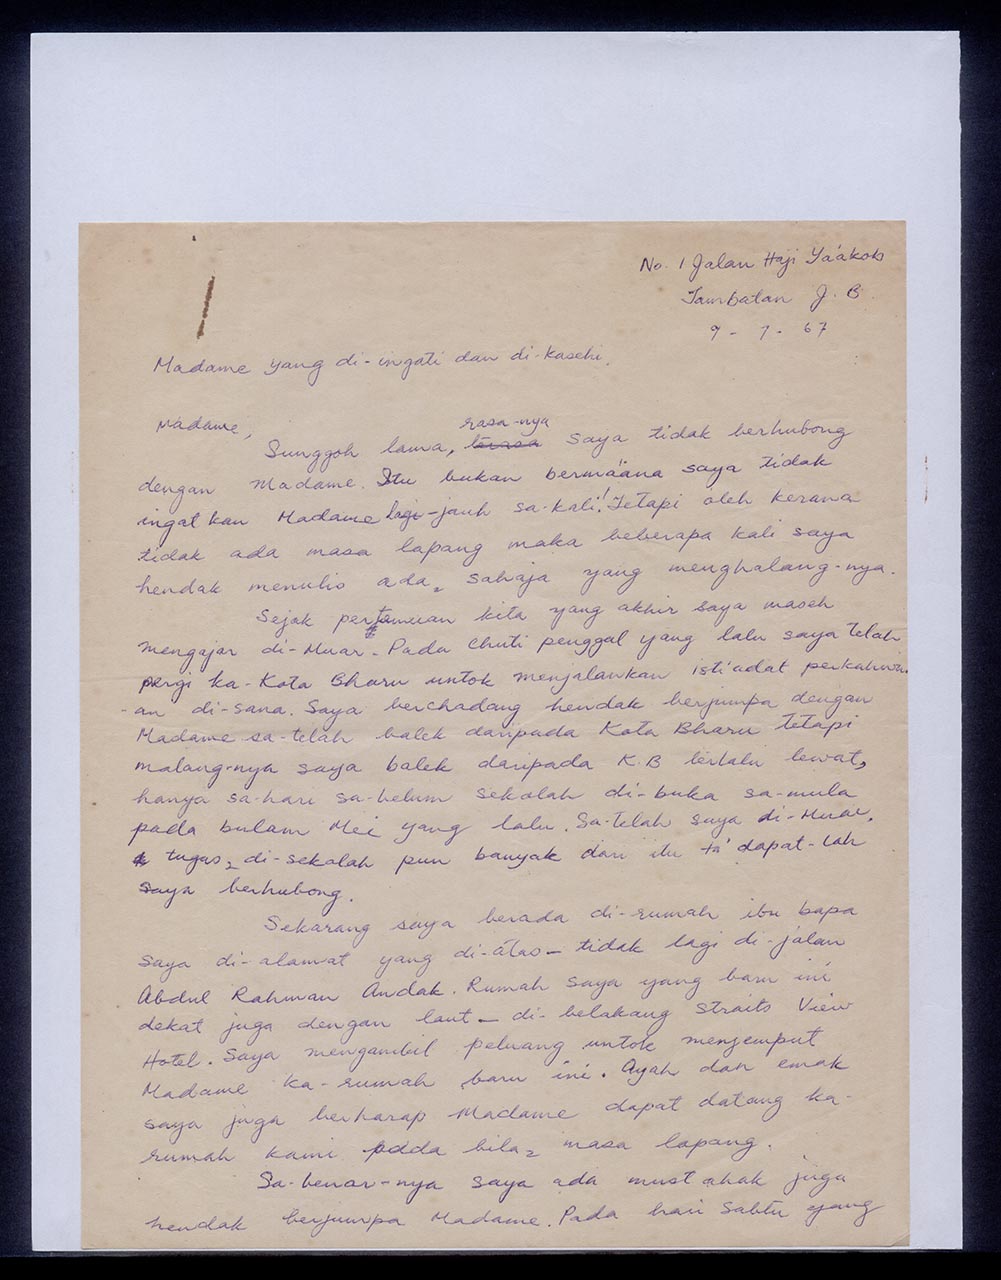 No. 1 Jalan Haji Ya'akob
Tambatan J. B.
9 - 7 - 67
Madame yang di-ingati dan di-kasehi.
Madame,
rasa-nya
Sunggoh lama, terasa saya tidak berhubong
dengan Madame. Itu bukan berma'ana saya tidak
ingatkan Madame lagi - jauh sa-kali! Tetapi oleh kerana
tidak ada masa lapang maka beberapa kali saya
hendak menulis ada2 sahaja yang menghalang-nya.
Sejak pertemuan kita yang akhir saya maseh
mengajar di-Muar. Pada chuti penggal yang lalu saya telah
pergi ka-Kota Bharu untok menjalankan isti'adat perkahwin
-an di-sana. Saya berchadang hendak berjumpa dengan
Madame sa-telah balek daripada Kota Bharu tetapi
malang-nya saya balek daripada K.B terlalu lewat,
hanya sa-hari sa-belum sekolah di-buka sa-mula
pada bulan Mei yang lalu. Sa-telah saya di-Muar,
tugas2 di-sekolah pun banyak dan itu ta' dapat-lah
saya berhubong.
Sekarang saya berada di-rumah ibu bapa
saya di-alamat yang di-atas - tidak lagi di-jalan
Abdul Rahman Andak. Rumah saya yang baru ini
dekat juga dengan laut - di-belakang Straits View
Hotel. Saya mengambil peluang untok menjemput
Madame ka-rumah baru ini. Ayah dan emak
saya juga berharap Madame dapat datang ka-
rumah kami pada bila2 masa lapang.
Sa-benar-nya saya ada mustahak juga
hendak berjumpa Madame. Pada hari Sabtu yang